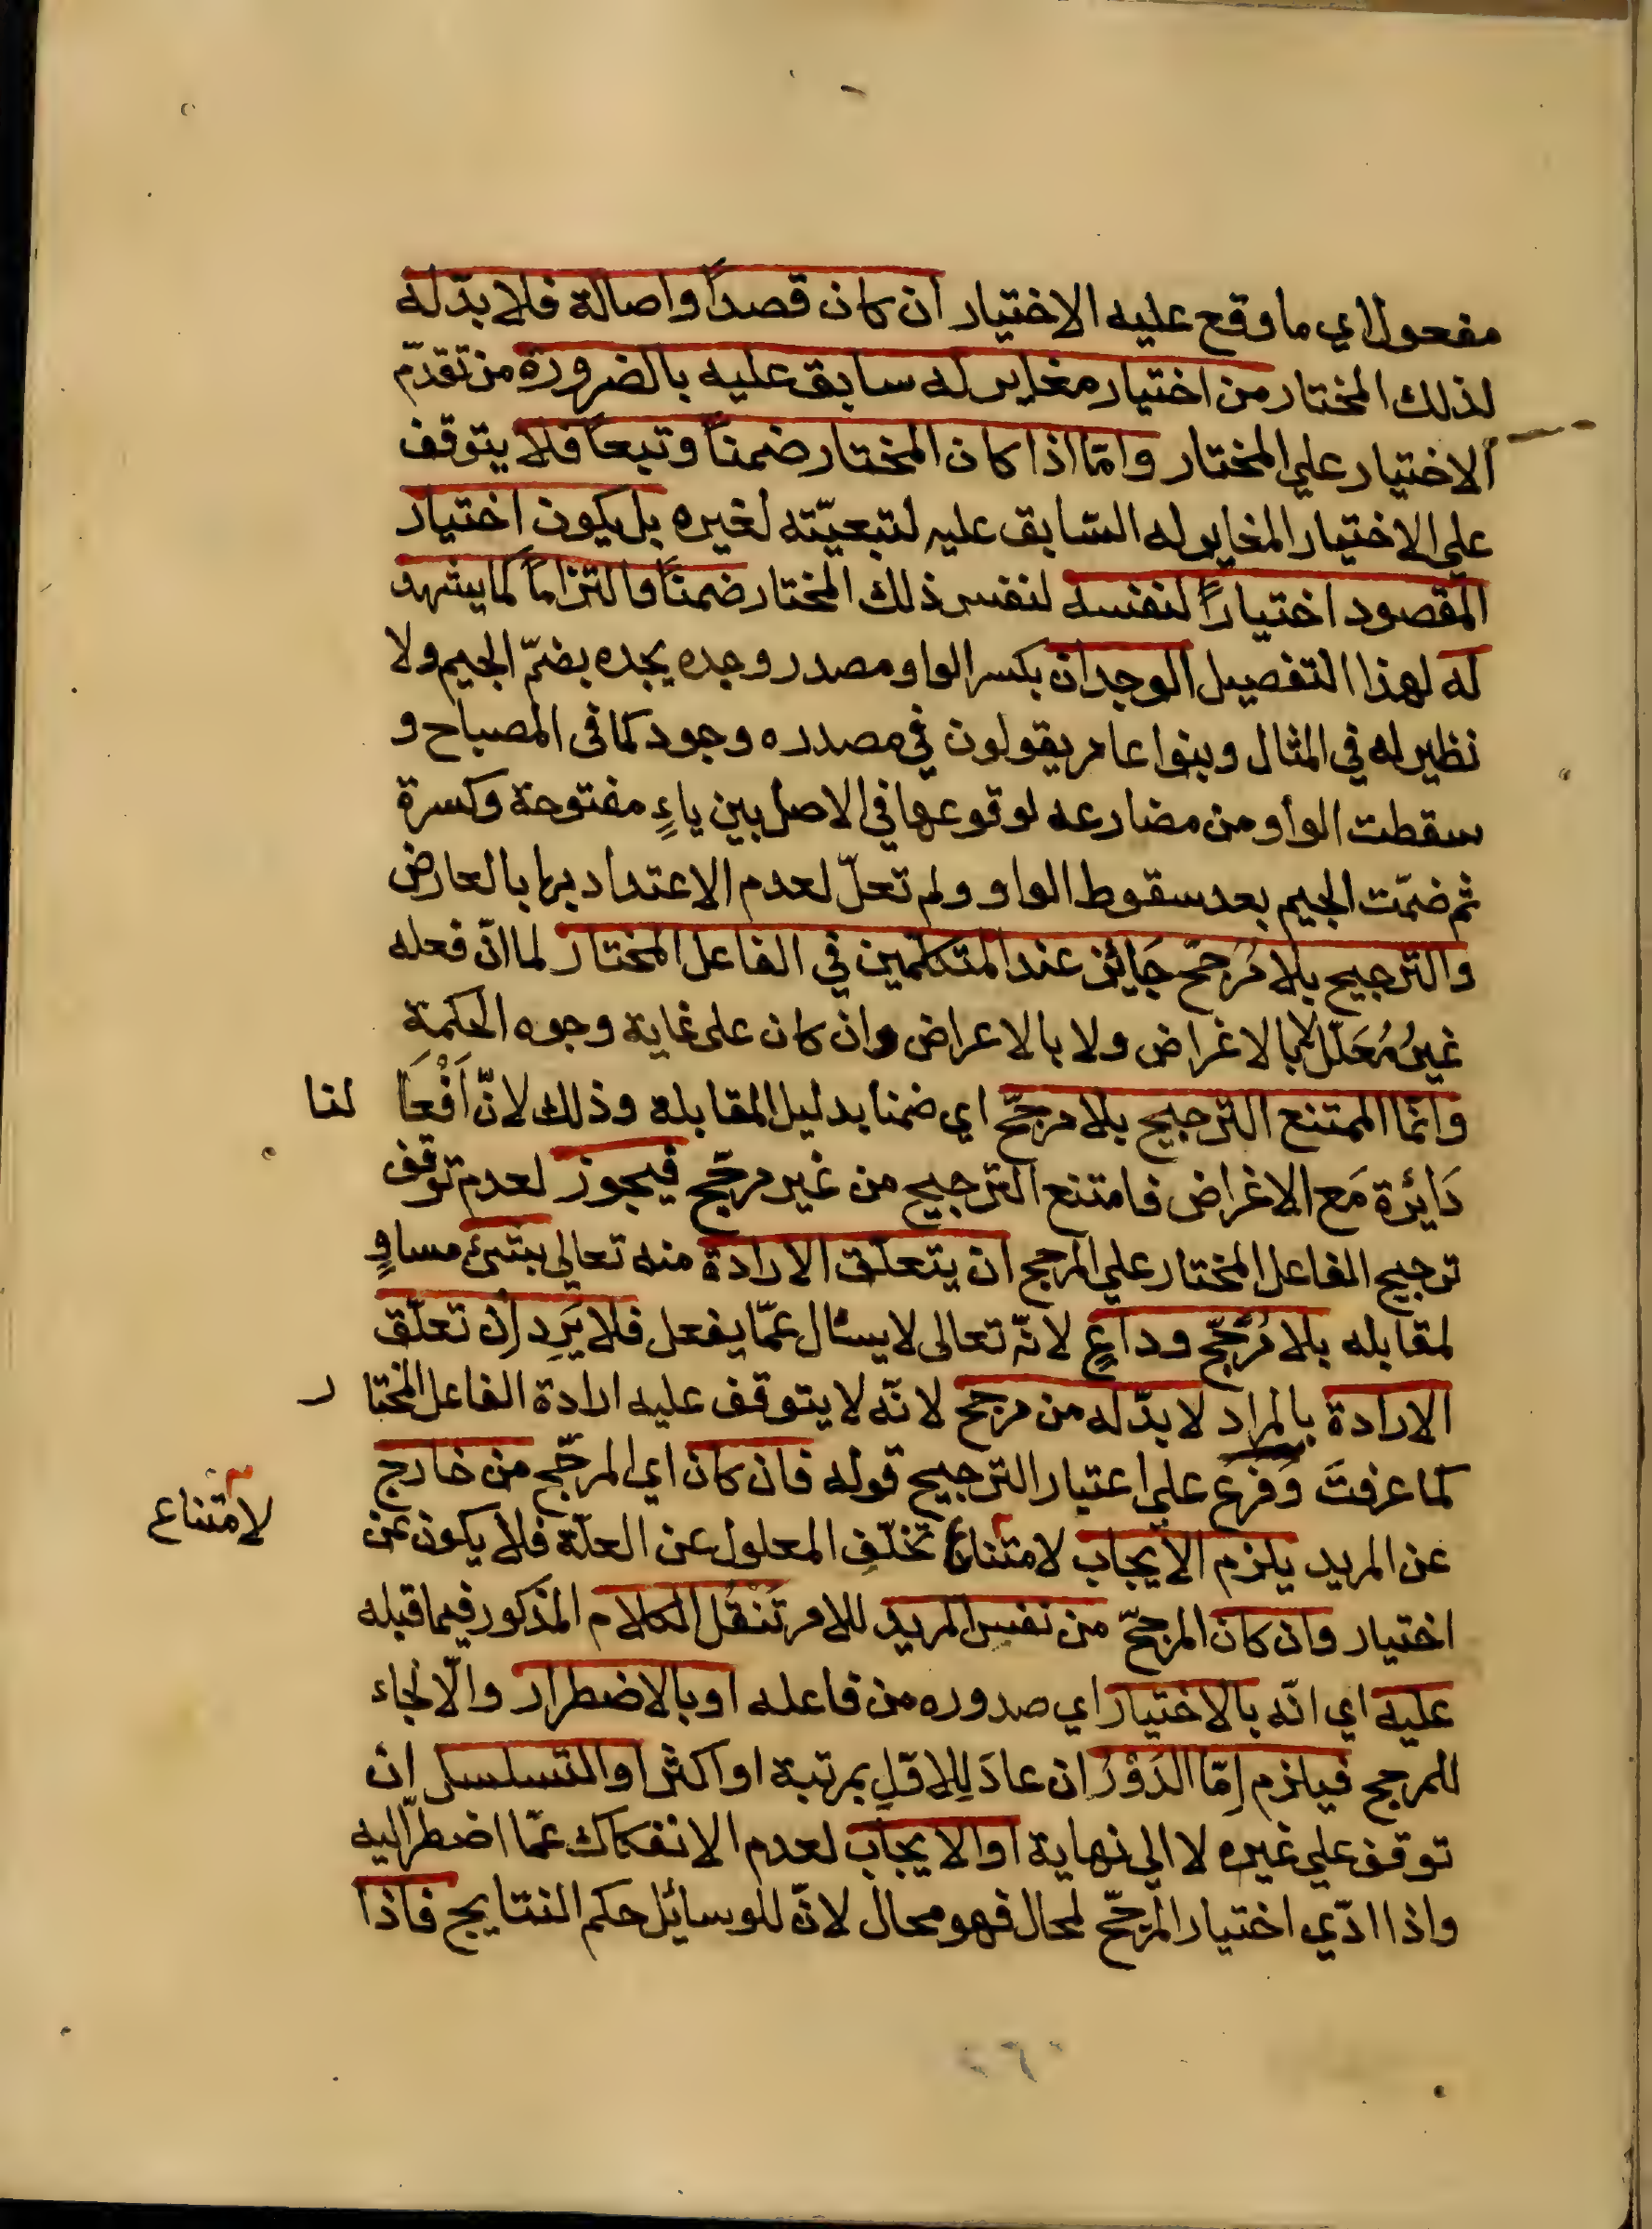 مفعول اي ما وقع عليه الاختيار ان كان قصداً واصالة فلا بدّ له
لذلك المختار من اختيار مغاير له سابق عليه بالضرورة من تقدّم
الاختيار علي المختار وامّا اذا كان المختار ضمناً وتبعاً فلا يتوقف
علي الاختيار المغاير له السّابق عليه لتبعيّته لغيره بل يكون اختيار
المقصود اختياراً لنفسه لنفس ذلك المختار ضمناً والتزاماً كما يشهد
له لهذا التفصيل الوجدان بكسر الواو مصدر وجده يجده بضمّ الجيم ولا
نظير له في المثال وبنوا عامر يقولون في مصدره وجود كما فى المصباح و
سقطت الواو من مضارعه لوقوعها في الاصل بين ياءٍ مفتوحة وكسرة
ثم ضمّت الجيم بعد سقوط الواو ولم تعلّ لعدم الاعتداد بها بالعارض
والترجيح بلا مُرَجّح جَايئز عند المتكلّمين في الفاعل المختار لما انّ فعله
غيرُ مُعَلّل بالاغراض ولا بالاعراض وان كان على غاية وجوه الحكمة
وانّما الممتنع الترجيح بلا مرجّح اي ضمنا بدليل المقابله وذلك لانّ اَفْعَا لنا
دَائِرة مَع الاغراض فامتنع الترجيح من غير مرجّح فيجوز لعدم توقف
ترجيح الفاعل المختار علي المرجح ان يتعلّق الارادة منه تعالي بشئ مساوٍ
لمقابله بلا مُرَجّح وداعٍ لانّه تعالى لا يسئال عمّا يفعل فلا يَرِد ان تعلّق
الارادة بالمراد لا بدّ له من مرجح لانّه لا يتوقف عليه ارادة الفاعل المختا ر
كما عرفتَ وَفرع علي اعتبار الترجيح قوله فان كان اي المرجّح من خارج
عن المريد يلزم الايجاب لامتناع تخلّفِ المعلول عن العلّة فلا يكون عن
لامتناع
اختيار وان كان المرجّح من نفس المريد للامر تَنْقُل الكلام المذكور فيما قبله
عليه اي انّه بالاختيار اي صدوره من فاعله او بالاضطرار والّالجاء
للمرجح فيلزم اِمّا الدَوْرُ ان عادَ لِلاقلِ بمرتبة او اكثر او التسلسل ان
توقف علي غيره لا الي نهاية او الايجاب لعدم الانفكاك عمّا اضطرّ اليه
واذا ادّي اختيار المرجّح لمحال فهو محال لانّ للوسائل حكم النتايج فاذا